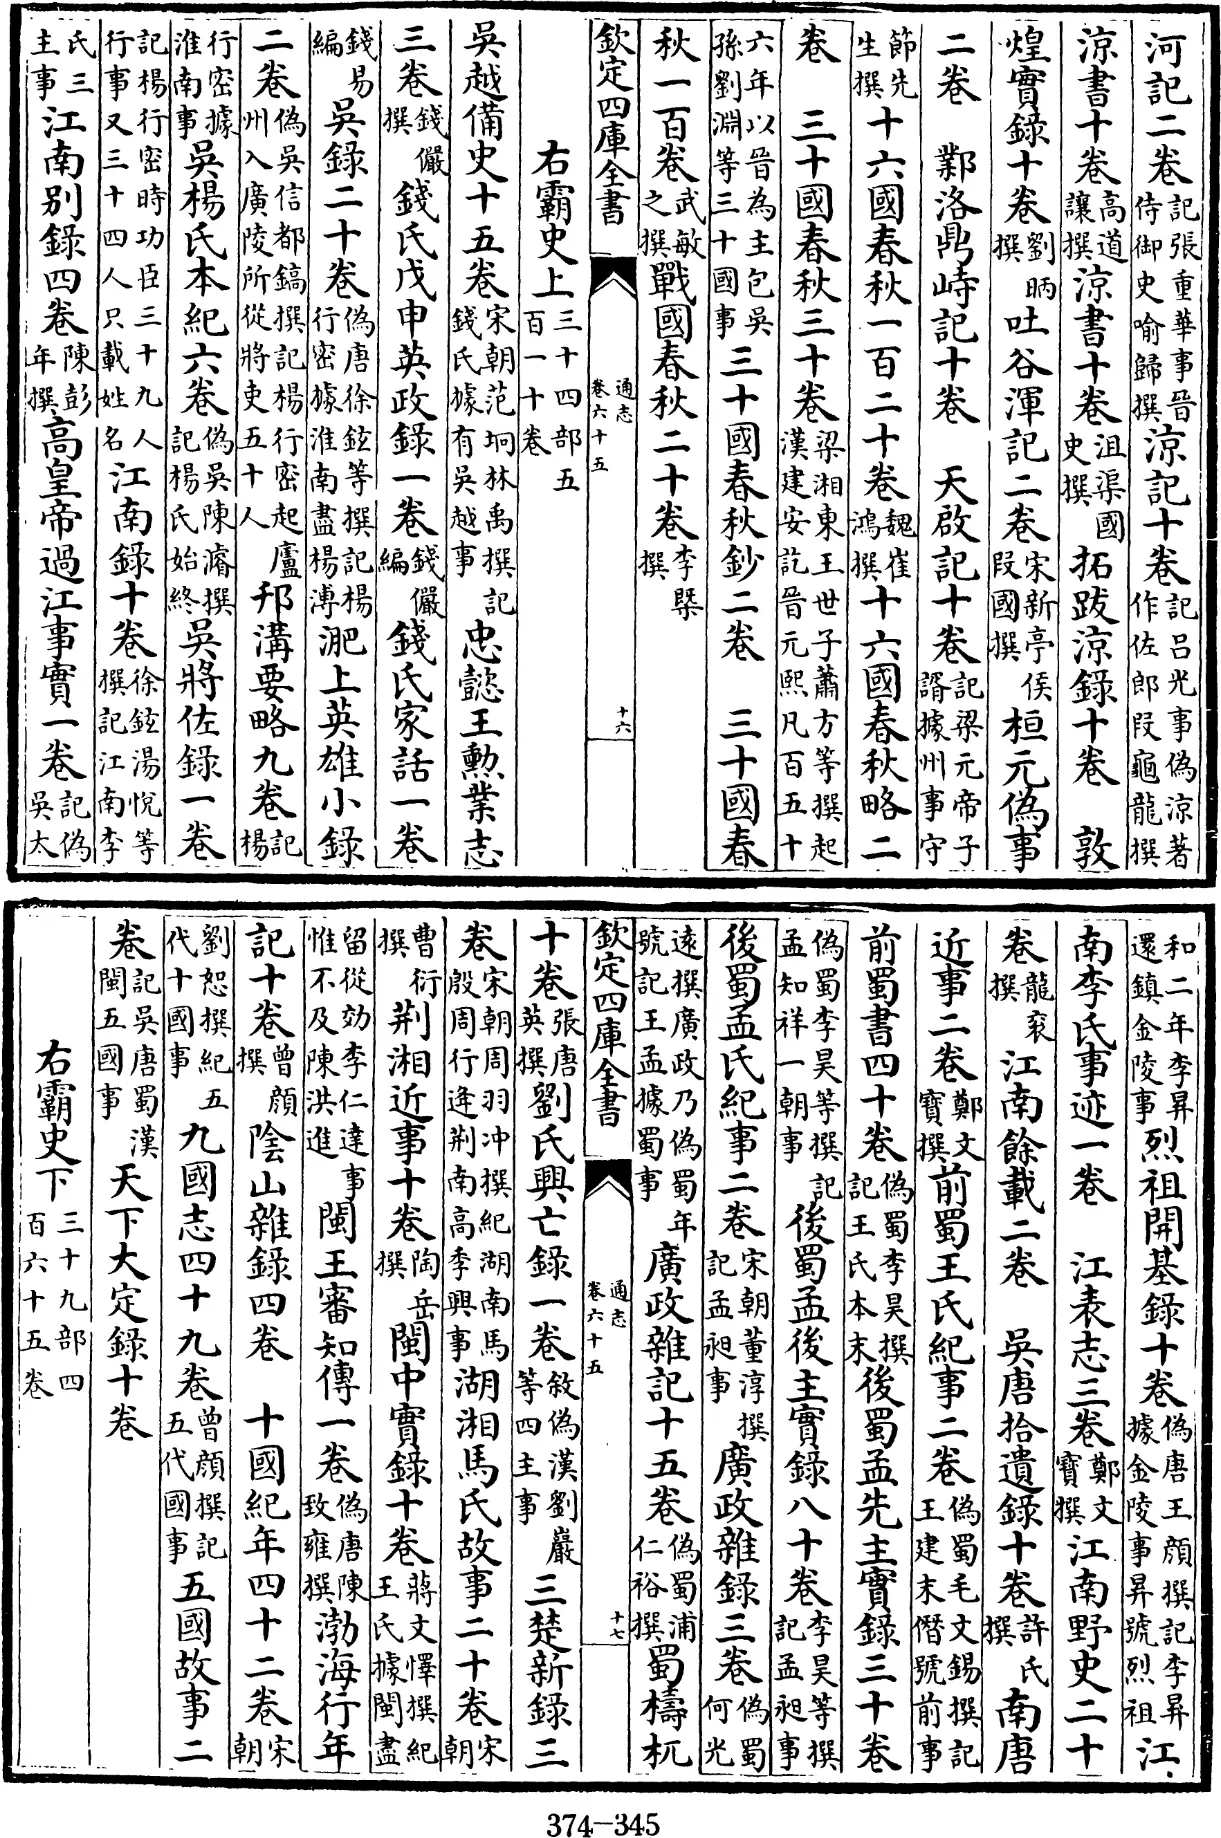 河記二卷記張重華事晉侍御史喻歸撰涼記十卷記呂光事偽涼著作佐郎叚龜龍撰
涼書十卷高道讓撰涼書十卷沮渠國史撰拓跋涼錄十卷　敦
煌實錄十卷劉昞撰吐谷渾記二卷宋新亭侯叚國撰桓元偽事
二卷　鄴洛鼎峙記十卷　天啟記十卷記梁元帝子諝據州事守
節先生撰十六國春秋一百二十卷魏崔鴻撰十六國春秋略二
卷　三十國春秋三十卷梁湘東王世子蕭方等撰起漢建安訖晉元熙凡百五十
六年以晉為主包吳孫劉淵等三十國事三十國春秋鈔二卷　三十國春
秋一百卷武敏之撰戰國春秋二十卷李槩撰
欽定四庫全書　通志卷六十五　十六
右霸史上三十四部五百一十卷
吳越備史十五卷宋朝范坰林禹撰記錢氏據有吳越事忠懿王勲業志
三卷錢儼撰錢氏戊申英政錄一卷錢儼編錢氏家話一卷
錢易編吳錄二十卷偽唐徐鉉等撰記楊行密據淮南盡楊溥淝上英雄小錄
二卷偽吳信都鎬撰記楊行密起廬州入廣陵所從將吏五十人邗溝要略九卷記楊
行密據淮南事吳楊氏本紀六卷偽吳陳濬撰記楊氏始終吳將佐錄一卷
記楊行密時功臣三十九人行事又三十四人只載姓名江南錄十卷徐鉉湯悅等撰記江南李
氏三主事江南別錄四卷陳彭年撰高皇帝過江事實一卷記偽吳太
和二年李昇還鎮金陵事烈祖開基錄十卷偽唐王顔撰記李昇據金陵事昇號烈祖江
南李氏事迹一卷　江表志三卷鄭文寶撰江南野史二十
卷龍衮撰江南餘載二卷　吳唐拾遺錄十卷許氏撰南唐
近事二卷鄭文寶撰前蜀王氏紀事二卷偽蜀毛文錫撰記王建末僭號前事
前蜀書四十卷偽蜀李昊撰記王氏本末後蜀孟先主實錄三十卷
偽蜀李昊等撰記孟知祥一朝事後蜀孟後主實錄八十卷李昊等撰記孟昶事
後蜀孟氏紀事二卷宋朝董淳撰記孟昶事廣政雜錄三卷偽蜀何光
遠撰廣政乃偽蜀年號記王孟據蜀事廣政雜記十五卷偽蜀浦仁裕撰蜀檮杌
欽定四庫全書　通志卷六十五　十七
十卷張唐英撰劉氏興亡錄一卷敘偽漢劉巖等四主事三楚新錄三
卷宋朝周羽冲撰紀湖南馬殷周行逄荆南高季興事湖湘馬氏故事二十卷宋朝
曹衍撰荆湘近事十卷陶岳撰閩中實錄十卷蔣文懌撰紀王氏據閩盡
留從効李仁達事惟不及陳洪進閩王審知傳一卷偽唐陳致雍撰渤海行年
記十卷曾顔撰陰山雜錄四卷　十國紀年四十二卷宋朝
劉恕撰紀五代十國事九國志四十九卷曾顔撰記五代國事五國故事二
卷記吳唐蜀漢閩五國事天下大定錄十卷
右霸史下三十九部四百六十五卷
374-345